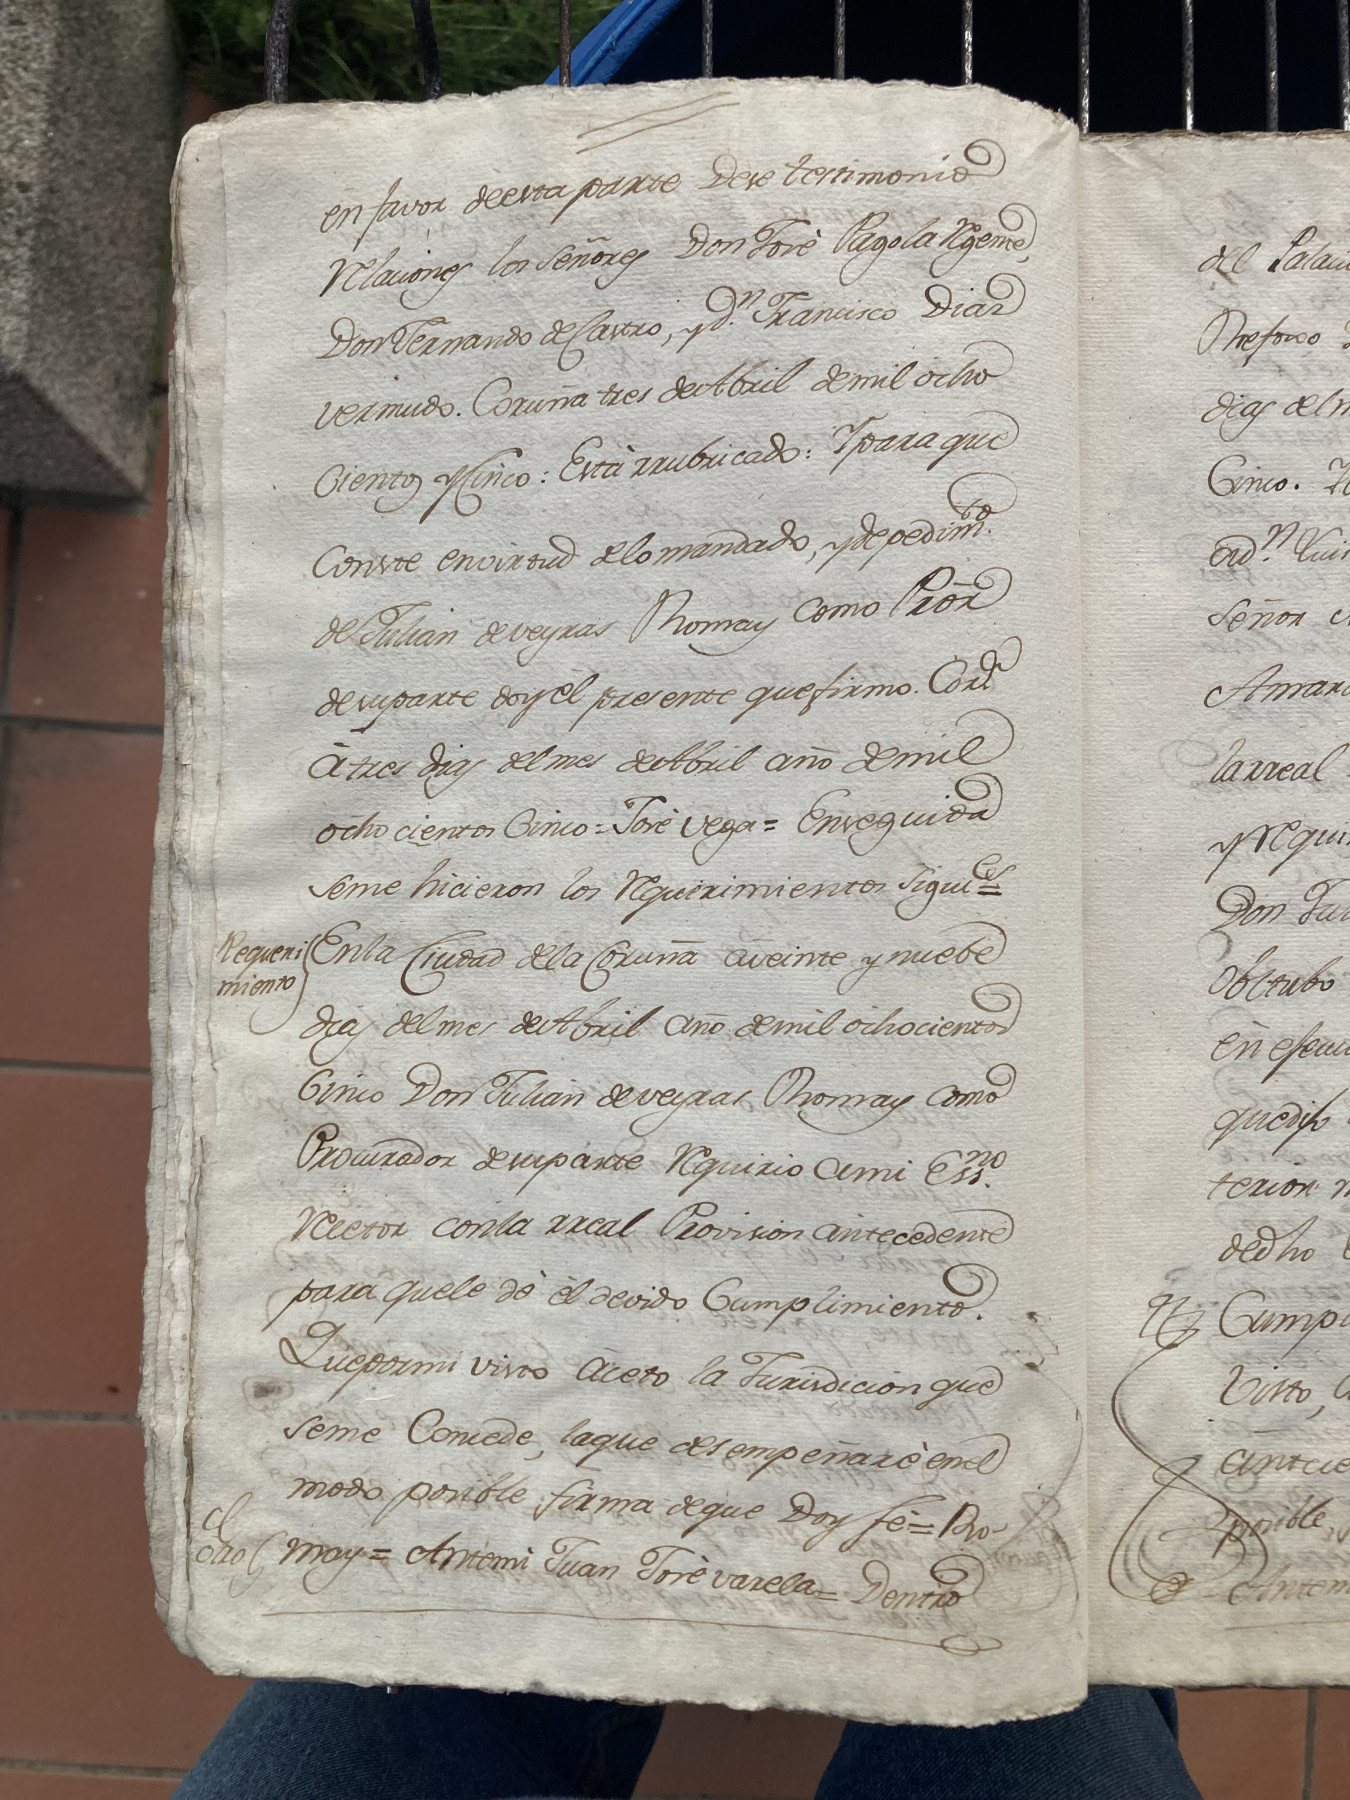 en favor deesta parte Dese testimonio
Relaciones los Señores Don Josè Pagola Rgente,
Don Fernando de Castro, y d.n Francisco Diaz
vermudo. Coruña tres de Abril de mil ocho
Cientos y Cinco: Està rrubricado: Y para que
Conste envirtud delo mandado, y de pedim.to
de Julian deveyras Rhomay como Prõr
desuparte doy el presente que firmo. Corã
à tres dias del mes de Abril año de mil
ocho cientos Cinco = Josè vega = Enseguida
seme hicieron los Requirimientos Sigui.es =
Requeri
miento
Enla Ciudad dela Coruña aveinte y nuebe
dias del mes de Abril año de mil ochocientos
Cinco Don Julian deveyras Rhomay como
Procurador desuparte Requirio ami Ess.no
Rector conla rreal Provision antecedente
para quele dè èl devido Cumplimiento.
Quepormi visto àceto la Jurisdicion que
seme Concede, laque desempeñarè enel
modo posible firma deque Doy fè = Rho-
el
otro
may = Antemi Juan Josè varela = Dentro
del Palaci
dias del m
Cinco.
ad.n Luis
Señor
Amara
la rreal
y Requi
Don Ju
obctubo
èn efecu
quedijo
terior
dedho
Cumpl
Visto,
antece
posible,
Antem